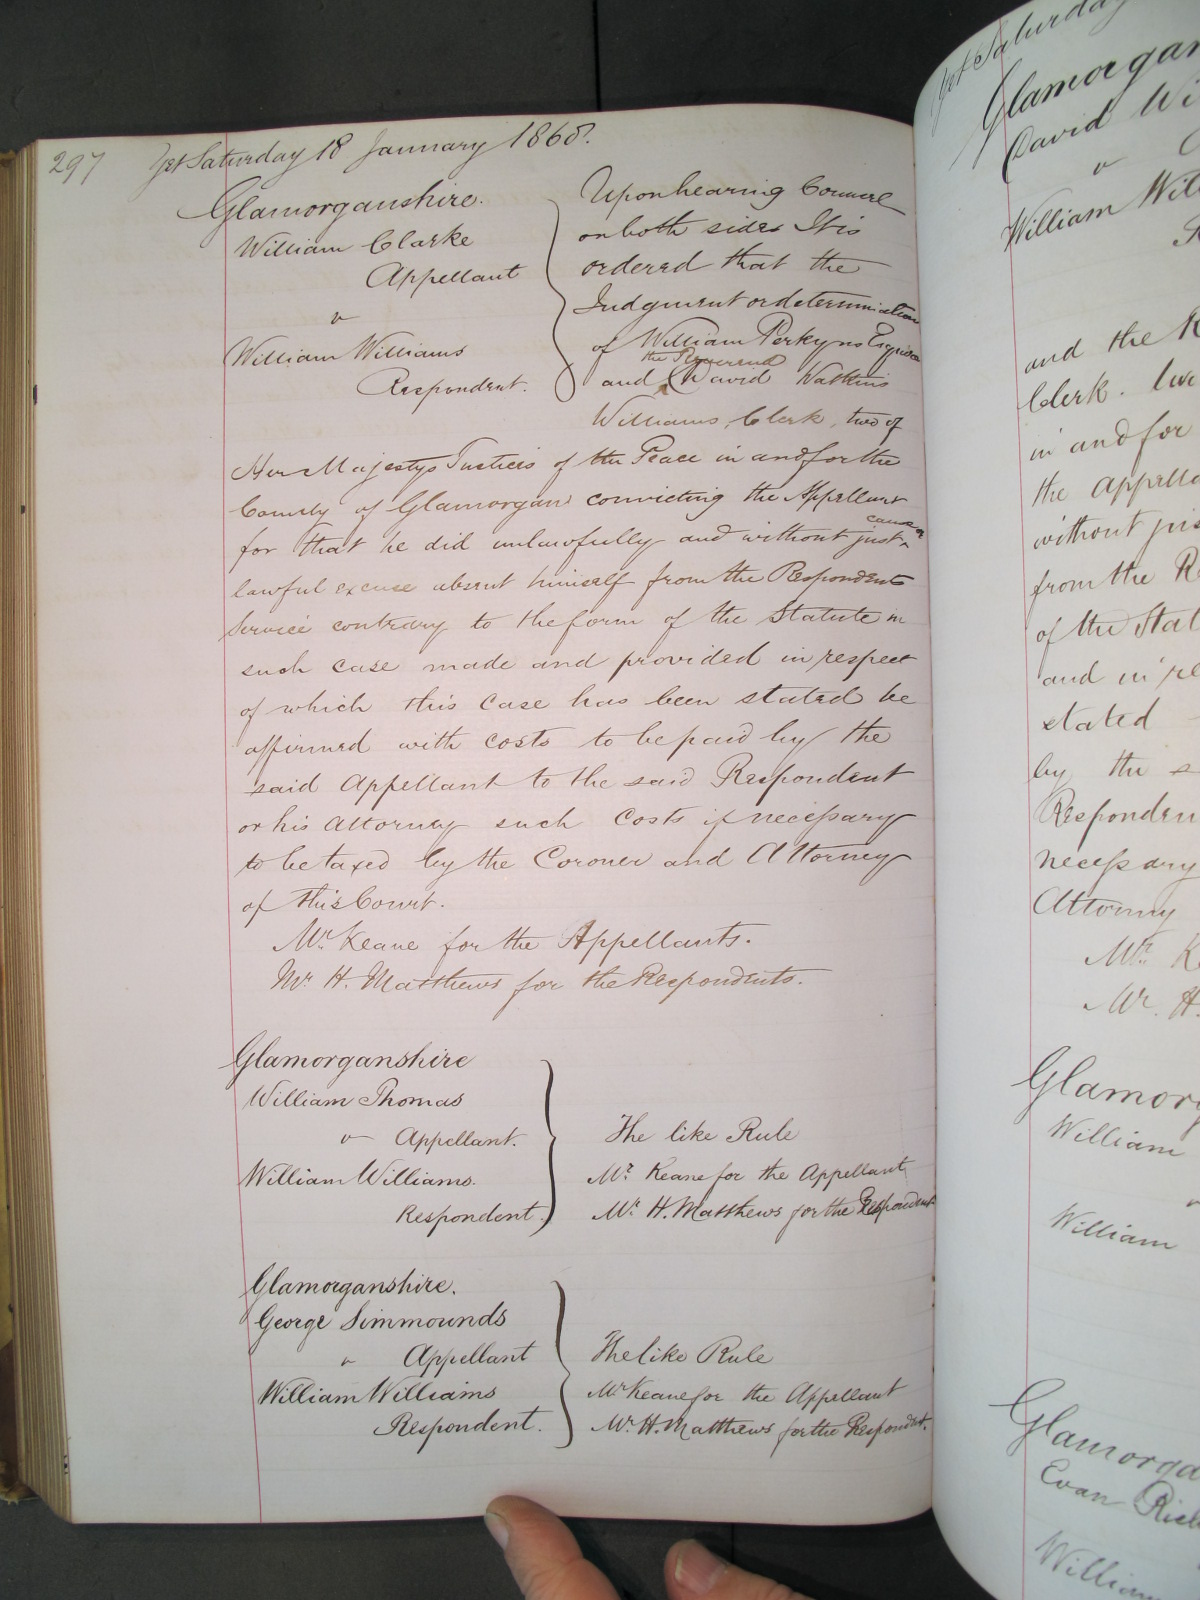 297 Yet Saturday 18 January 1868.
Glamorganshire.
William Clarke
Appellant
v
William Williams
Respondent.
Upon hearing Counsel
on both sides It is
ordered that the
Judgment or determination
of William Perkyns Esquire
and the Reverend David Watkins
Williams, Clerk, two of
Her Majestys Justices of the Peace in and for the
County of Glamorgan convicting the Appellant
for that he did unlawfully and without just cause or
lawful excuse absent himself from the Respondents
Service contrary to the form of the Statute in
such case made and provided in respect
of which this Case has been stated be
affirmed with costs to be paid by the
said Appellant to the said Respondent
or his Attorney such Costs if necessary
to be taxed by the Coroner and Attorney
of this Court.
Mr. Keane for the Appellants.
Mr. H. Matthews for the Respondents.
Glamorganshire
William Thomas
v Appellant.
William Williams.
Respondent.
The like Rule
Mr. Keane for the Appellant
Mr. H. Matthews for the Respondent
Glamorganshire.
George Simmounds
v Appellant
William Williams
Respondent.
The like Rule
Mr Keane for the Appellant
Mr. H. Matthews for the Respondent.
Yet Saturday
Glamorgan
David Wi
v
William Wil
R
and the R
Clerk.
in and for
the appella
without jus
from the R
of the Stat
and in re
stated
by the s
Responden
necessary
Attorney
Mr. K
Mr. H.
Glamorg
William
William
Glamorga
Evan Rich
William